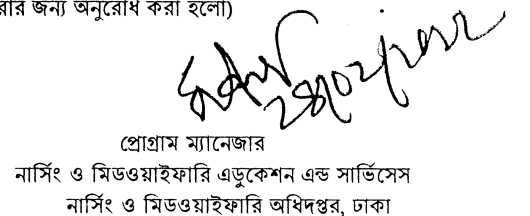 রার জন্য অনুরোধ করা হলো)
প্রোগ্রাম ম্যানেজার
নার্সিং ও মিডওয়াইফারি এডুকেশন এন্ড সার্ভিসেস
নার্সিং ও মিডওয়াইফারি অধিদপ্তর, ঢাকা